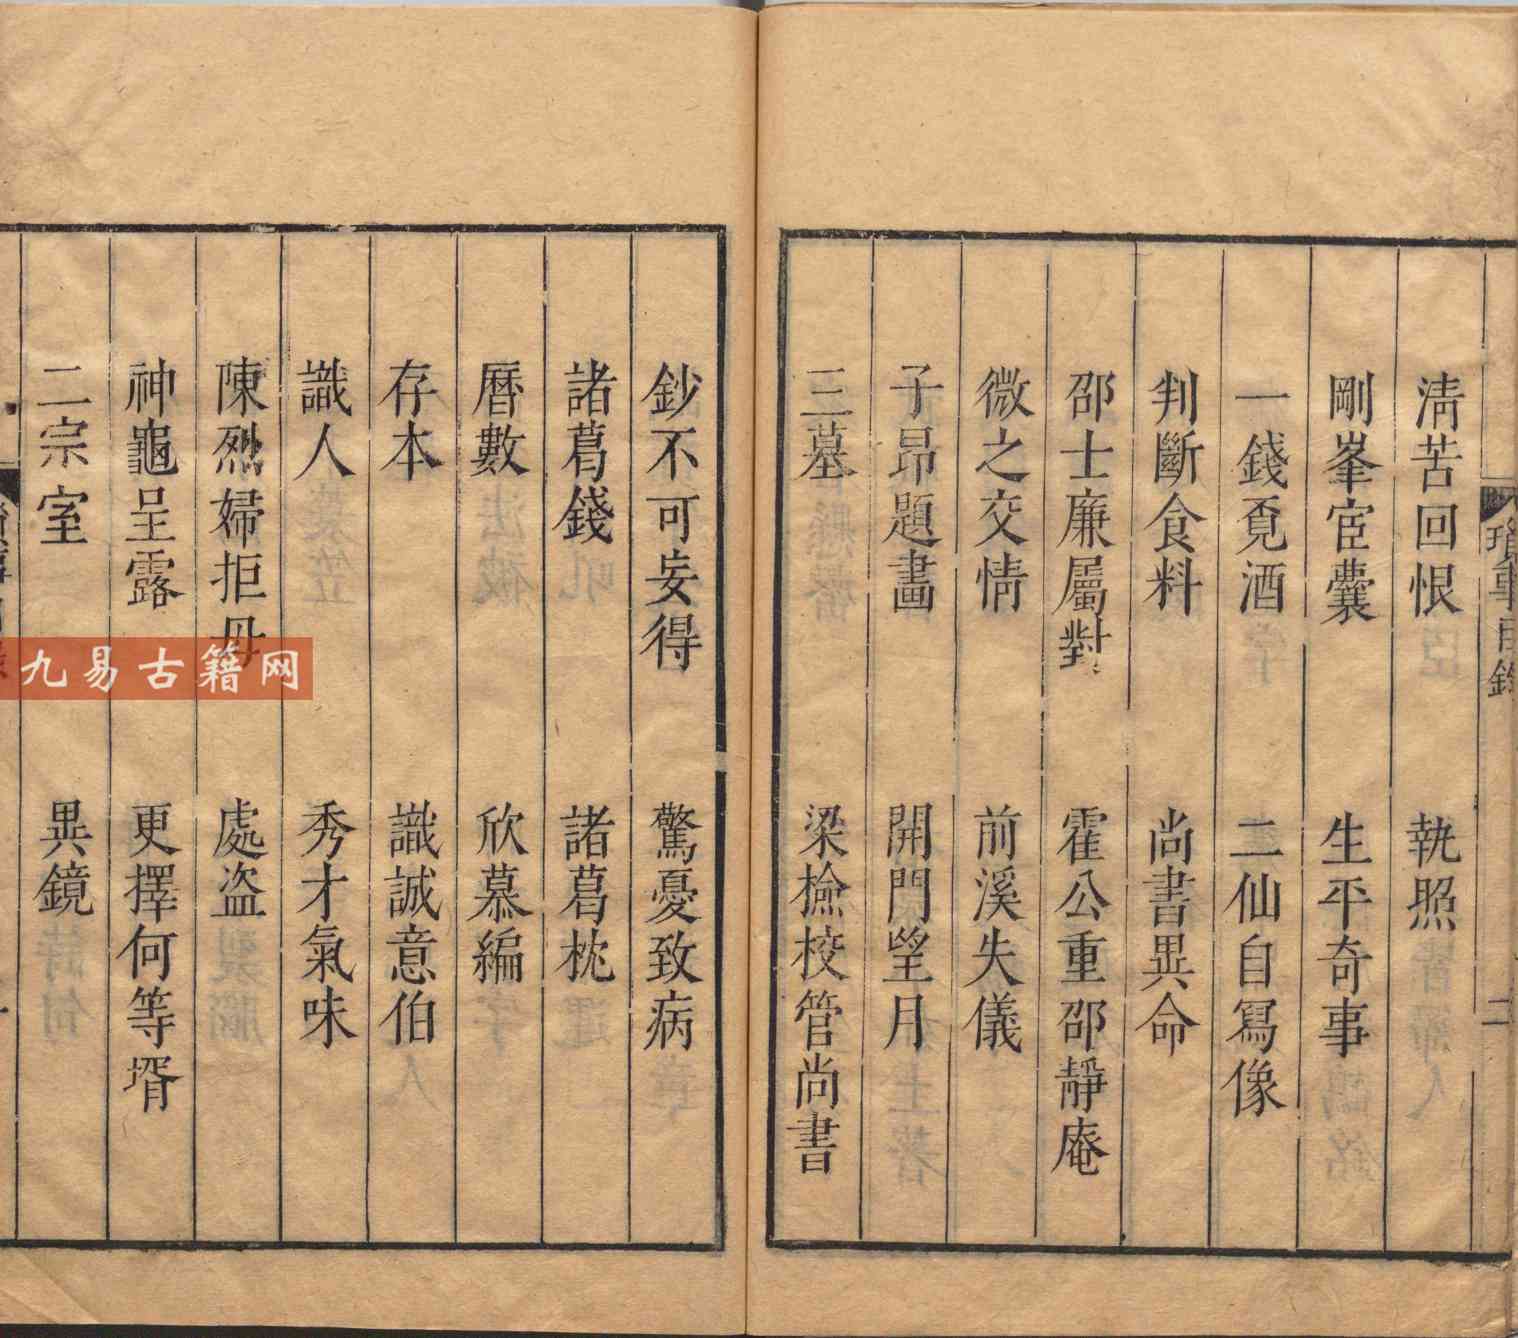 清苦回恨 執照
剛峯宦囊 生平奇事
一錢覓酒 二仙自寫像
判斷食料 尚書異命
邵士廉屬對 霍公重邵靜庵
微之交情 前溪失儀
子昂題畫 開門望月
三墓 梁檢校管尚書
鈔不可妄得 驚憂致病
諸葛錢 諸葛枕
曆數 欣慕編
存本 識誠意伯
識人 秀才氣味
陳烈婦拒母 處盜
神龜呈露 更擇何等壻
二宗室 異鏡
瑣事目錄 二
九易古籍网